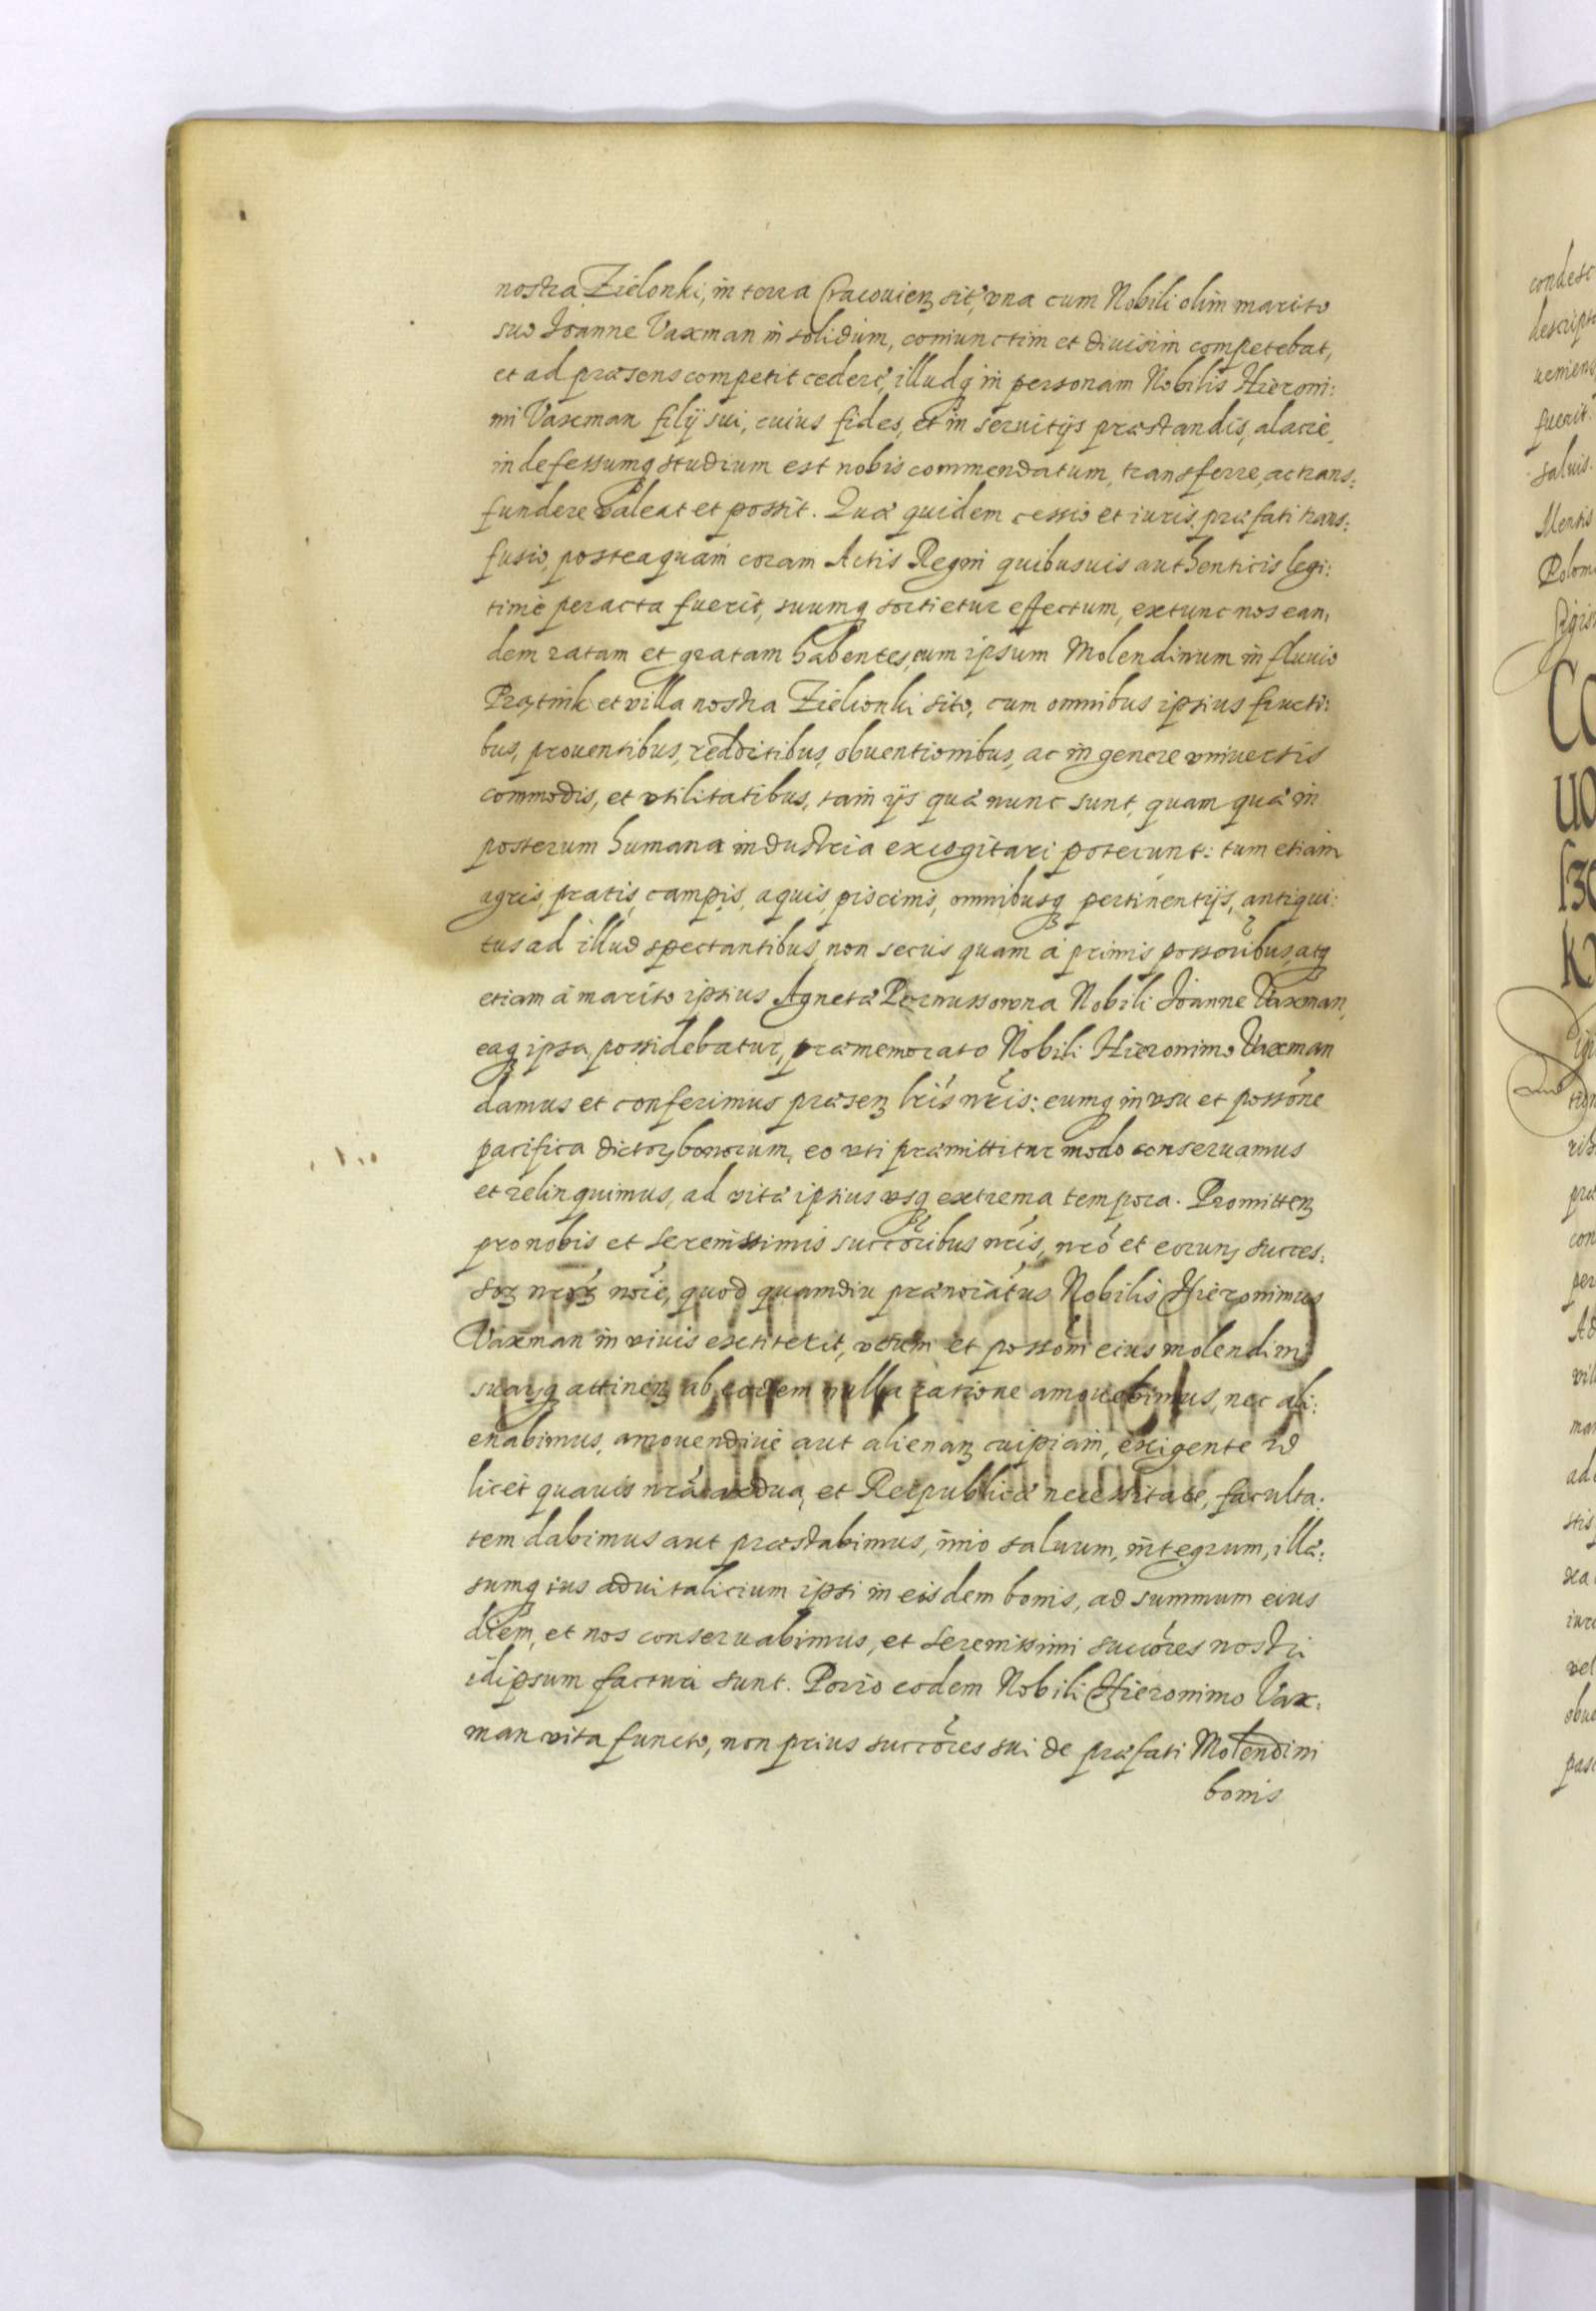 nostra Zielonki, in terra Cracouien sit, vna cum Nobili olim marito
suo Joanne Vaxman in solidum, coniunctim et diuisim competebat,
et ad præsens competit cedere, illudq in personam Nobilis Hieroni:
mi Vaxman filij sui, cuius fides, et in seruitijs præstandis, alacre,
indefessumq studium est nobis commendatum, transferre, ac trans:
fundere valeat et possit. Quæ quidem cessio et iuris præfati trans:
fusio, posteaquam coram Actis Regni quibusuis authenticis legi:
timè peracta fuerit, suumq sortietur effectum, extunc nos ean,
dem ratam et gratam habentes, cum ipsum Molendinum in fluuio
et villa nostra Zielionki sito, cum omnibus ipsius fructi:
bus, prouentibus, redditibus, obuentionibus, ac in genere vniuersis
commodis, et vtilitatibus, tam ijs quæ nunc sunt, quam quæ in
posterum humana industria excogitari poterunt: tum etiam
agris, pratis, campis, aquis, piscinis, omnibusq pertinentijs, antiqui:
tus ad illud spectantibus, non secus quam à primis possoribus, atq
etiam à marito ipsius Agnetæ Nobili Joanne Vaxman,
eaq ipsa possidebatur, præmemorato Nobili Hieronimo Vaxman
damus et conferimus præsen lris nris: eumq in vsu et possone
pacifica dictorꝝ bonorum, eo vti præmittitur modo conseruamus
et relinquimus, ad vitæ ipsius vsq extrema tempora. Promitten
pro nobis et Serenissimis succoribus nris, nro et eorunꝫ succes:
soꝝ nroꝝ noie, quod quamdiu prænoiatus Nobilis Hieronimus
Vaxman in viuis extiterit, vsum et possom eius molendini
suarꝝq attinen ab eodem nulla ratione amouebimus, nec ali:
enabimus, amouendiue aut alienan cuipiam, exigente id
licet quauis nra ardua, et Reipublicæ necessitate, faculta:
tem dabimus aut præstabimus, imo saluum, integrum, illæ:
sumq ius aduitalicium ipsi in eisdem bonis, ad summum eius
diem, et nos conseruabimus, et Serenissimi succores nostri
idipsum facturi sunt. Porro eodem Nobili Hieronimo Vax:
man vita functo, non prius succores sui de præfati Molendini
bonis